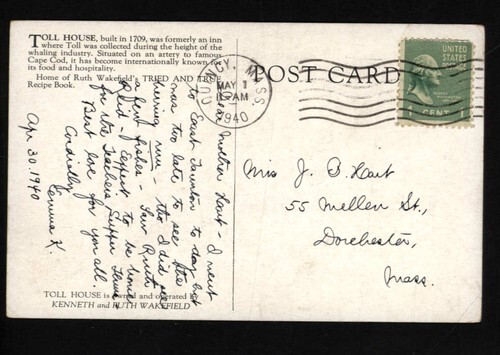 TOLL HOUSE, built in 1709, was formerly an inn
where Toll was collected during the height of the
whaling industry. Situated on an artery to famous
Cape Cod, it has become internationally known for
its food and hospitality.
Home of Ruth Wakefield's TRIED AND TRUE
Recipe Book.
Apr 30. 1940
Dear Mother Hart - I went
to East Taunton to day but
was too late to see the
herring run - tho I did see
a few fishes - Saw Ruth
Reid - Expect to be home
for the Teachers Supper
Best love for you all.
Cordially
Emma K.
TOLL HOUSE is owned and operated by
KENNETH and RUTH WAKEFIELD
POST CARD
QUINCY, MASS.
MAY 1
AM
1940
UNITED
STATES
1 CENT 1
Mrs J. B. Hart
55 Mellen St.,
Dorchester,
Mass.